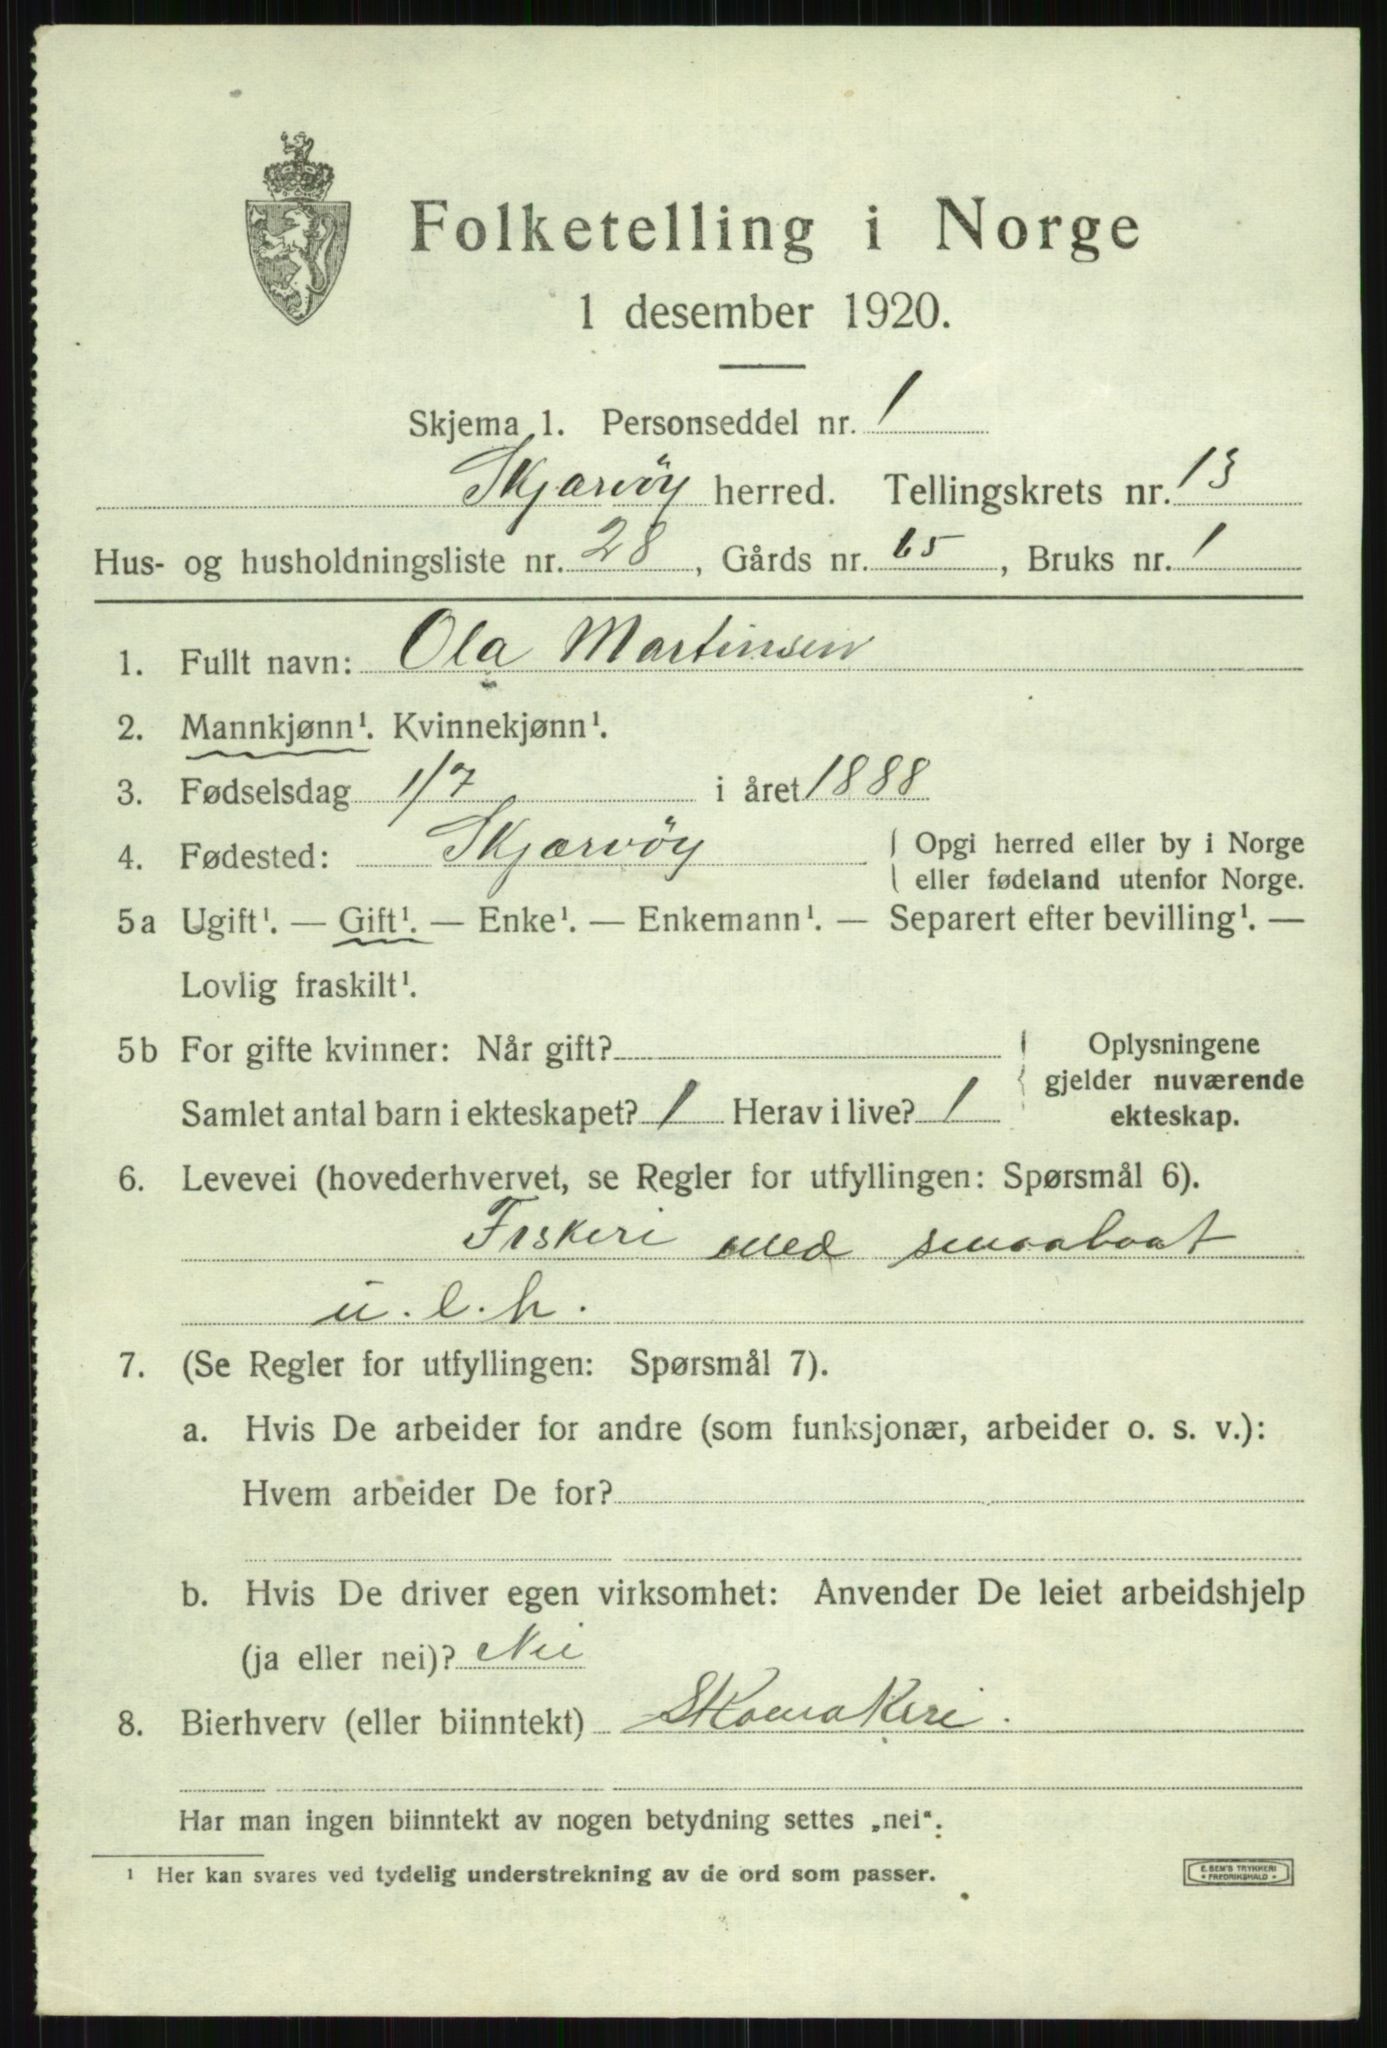 Folketelling i Norge
1 desember 1920.
Skjema 1. Personseddel nr. 1
Skjærvöy herred. Tellingskrets nr. 13
Hus- og husholdningsliste nr. 28, Gårds nr. 65, Bruks nr. 1
1. Fullt navn: Ola Martinsen
2. Mannkjønn¹. Kvinnekjønn¹.
3. Fødselsdag 1/7 i året 1888
4. Fødested: Skjærvöy { Opgi herred eller by i Norge
eller fødeland utenfor Norge.
5a Ugift¹. — Gift¹. — Enke¹. — Enkemann¹. — Separert efter bevilling¹. —
Lovlig fraskilt¹.
5b For gifte kvinner: Når gift?
Samlet antal barn i ekteskapet? 1 Herav i live? 1
Oplysningene
gjelder nuværende
ekteskap.
6. Levevei (hovederhvervet, se Regler for utfyllingen: Spørsmål 6).
Fiskeri med smaabaat
u.l.h.
7. (Se Regler for utfyllingen: Spørsmål 7).
a. Hvis De arbeider for andre (som funksjonær, arbeider o. s. v.):
Hvem arbeider De for?
b. Hvis De driver egen virksomhet: Anvender De leiet arbeidshjelp
(ja eller nei)? Nei
8. Bierhverv (eller biinntekt) Skomakeri.
Har man ingen biinntekt av nogen betydning settes „nei“.
¹ Her kan svares ved tydelig understrekning av de ord som passer.
E. SEM'S TRYKKERI
FREDRIKSHALD